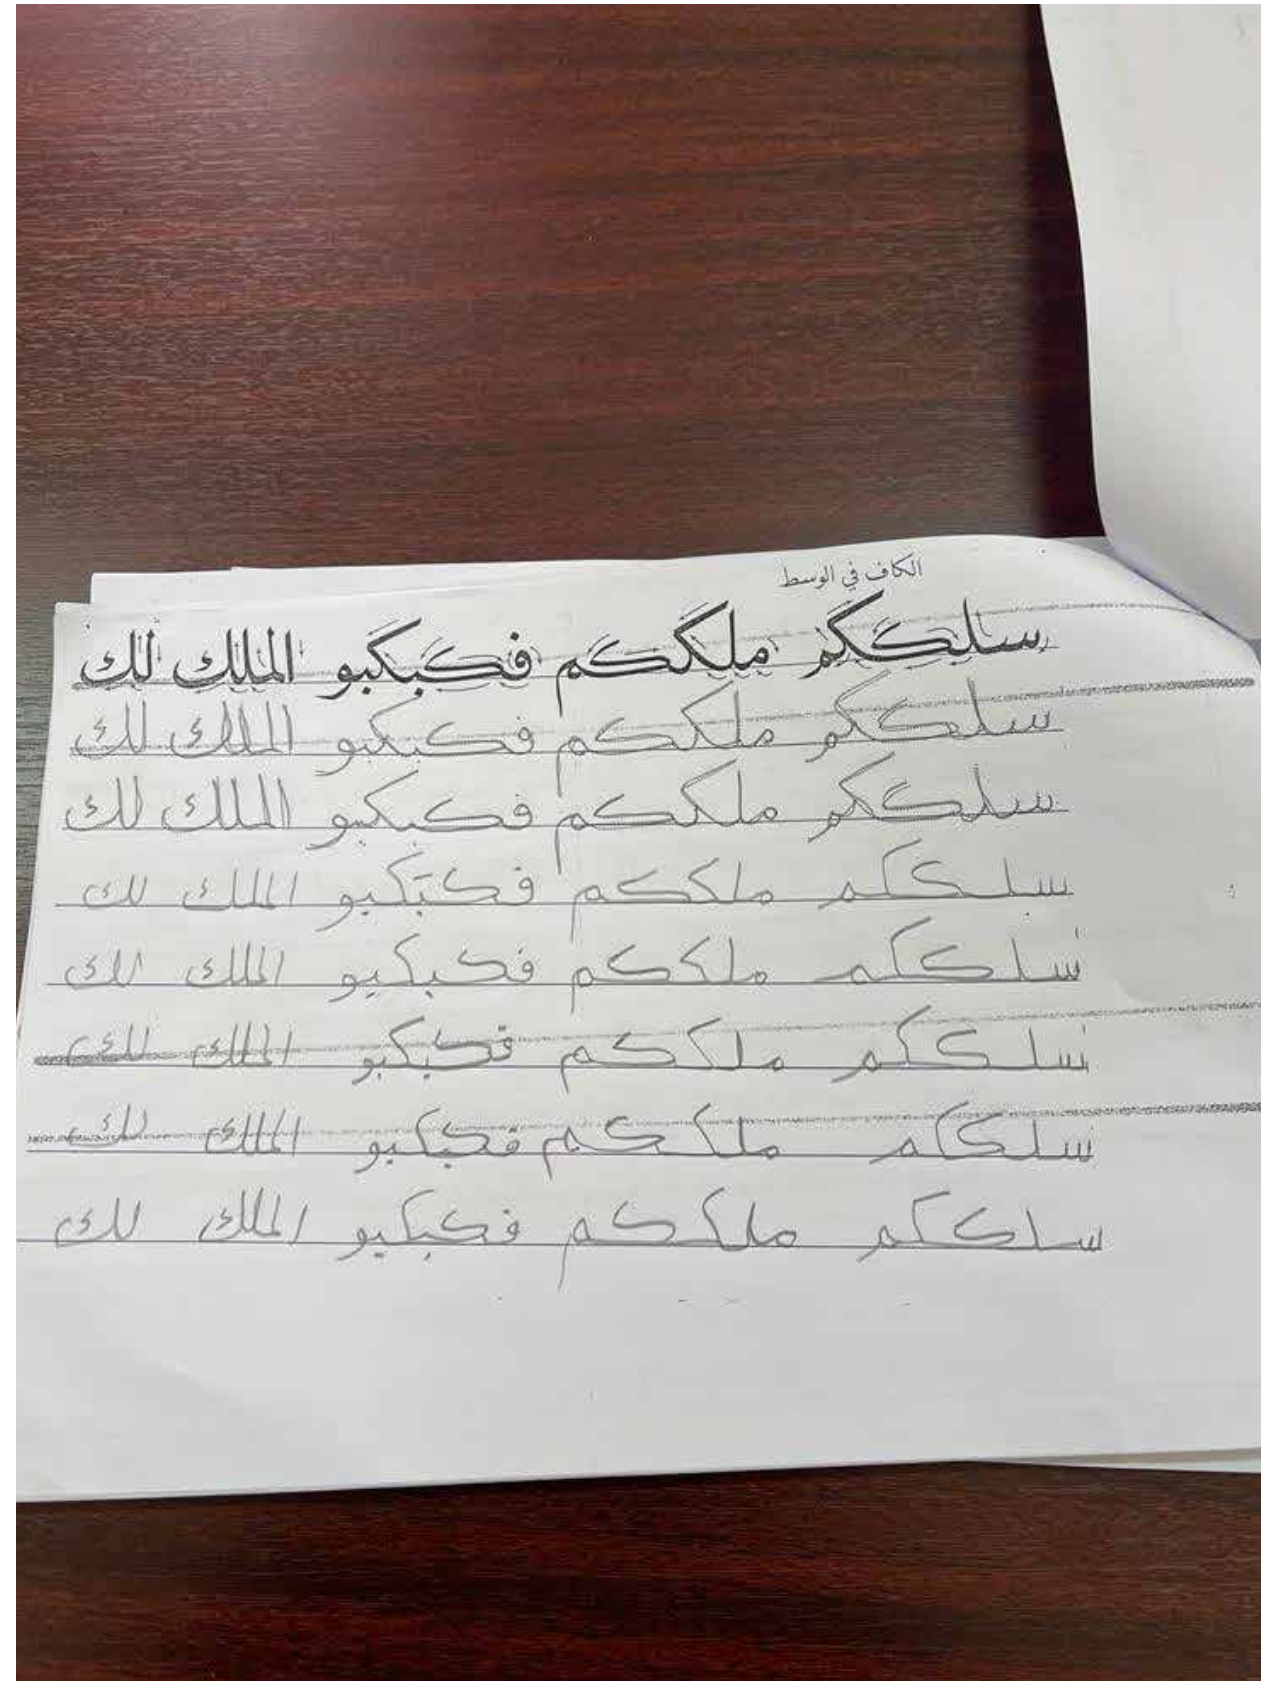 الكاف في الوسط
سلككم ملككم فكبكبو الملك لك
سلككم ملككم فكبكبو الملك لك
سلككم ملككم فكبكبو الملك لك
سلككم ملككم فكبتكبو الملك لك
سلككم ملككم فكبكيو الملك لك
سلككم ملككم فكبكبو الملك لك
سلككم ملككم فكبكبو الملك لك
سلككم ملككم فكبكيو الملك لك